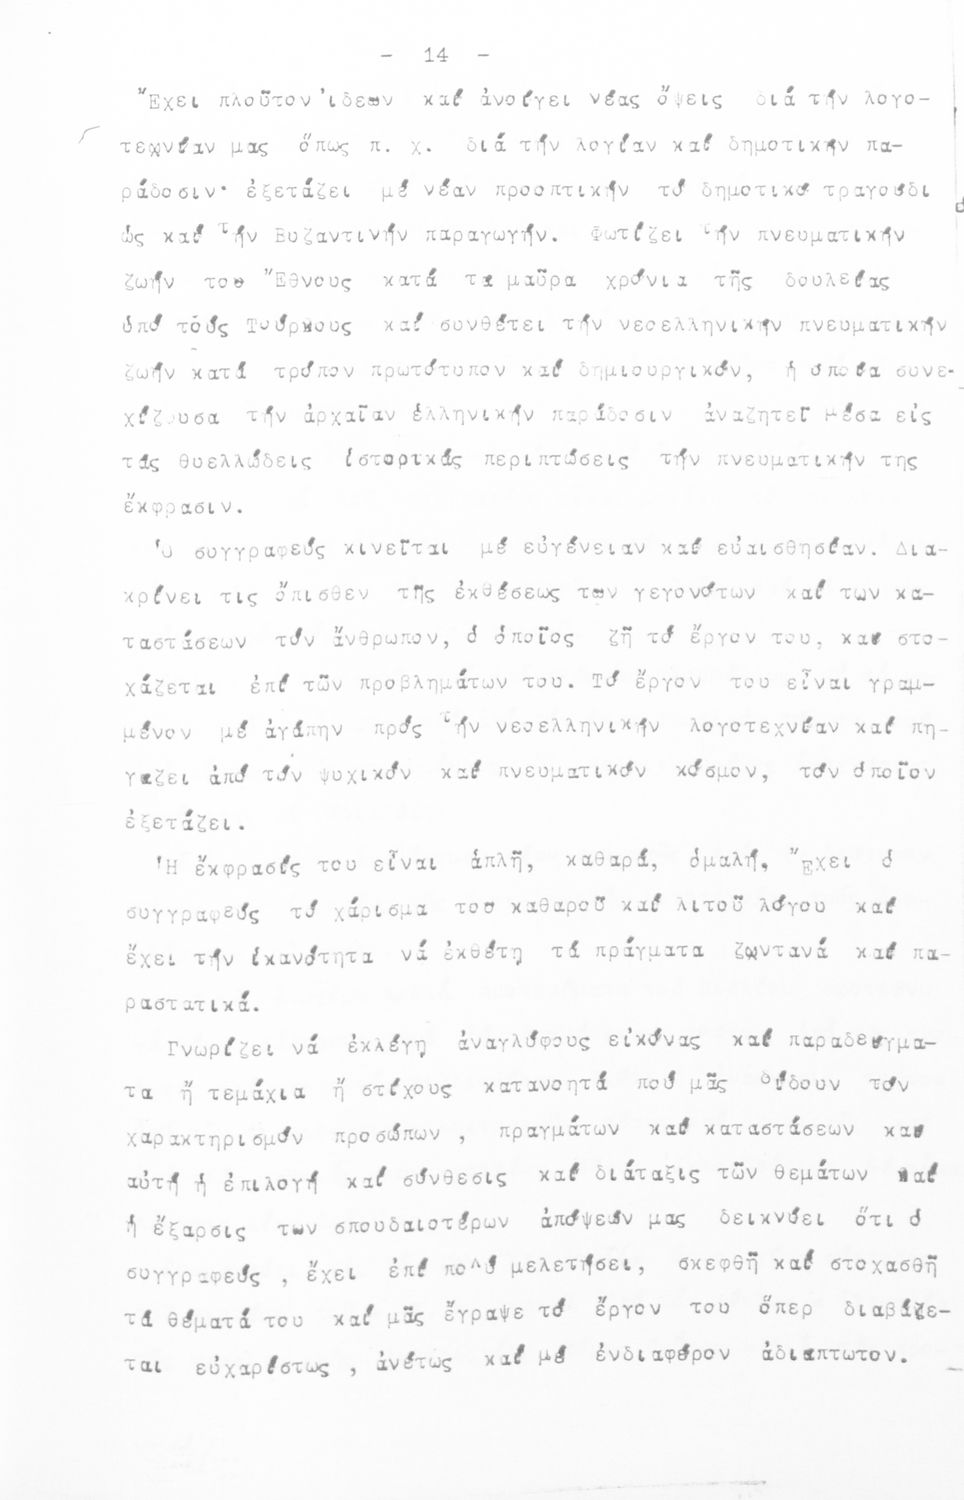 - 14 -
Ἔχει πλοῦτον ἰδεων καί ἀνοίγει νέας ὄψεις διά τήν λογο-
τεχνίαν μας ὅπως π. χ. διά τήν λογίαν καί δημοτικήν πα-
ράδοσιν· ἐξετάζει μέ νέαν προοπτικήν τό δημοτικό τραγούδι
ὡς καί τήν Βυζαντινήν παραγωγήν. Φωτίζει τήν πνευματικήν
ζωήν του Ἔθνους κατά τα μαῦρα χρόνια τῆς δουλείας
ὑπό τούς Τούρκους καί συνθέτει τήν νεοελληνικήν πνευματικήν
ζωήν κατά τρόπον πρωτότυπον καί δημιουργικόν, ἡ ὁποία συνε-
χίζουσα τήν ἀρχαῖαν ἑλληνικήν παράδοσιν ἀναζητεῖ μέσα εἰς
τάς θυελλώδεις ἱστορικάς περιπτώσεις τήν πνευματικήν της
ἔκφρασιν.
Ὁ συγγραφεύς κινεῖται μέ εὐγένειαν καί εὐαισθησίαν. Δια-
κρίνει τις ὄπισθεν τῆς ἐκθέσεως των γεγονότων καί των κα-
ταστάσεων τόν ἄνθρωπον, ὁ ὁποῖος ζῆ τό ἔργον του, και στο-
χάζεται ἐπί τῶν προβλημάτων του. Τό ἔργον του εἶναι γραμ-
μένον μέ ἀγάπην πρός τήν νεοελληνικήν λογοτεχνίαν καί πη-
γαζει ἀπό τόν ψυχικόν καί πνευματικόν κόσμον, τόν ὁποῖον
ἐξετάζει.
Ἡ ἔκφρασίς του εἶναι ἁπλῆ, καθαρά, ὁμαλή, Ἔχει ὁ
συγγραφεύς τό χάρισμα του καθαροῦ καί λιτοῦ λόγου καί
ἔχει τήν ἱκανότητα νά ἐκθέτῃ τά πράγματα ζωντανά καί πα-
ραστατικά.
Γνωρίζει νά ἐκλέγῃ ἀναγλύφους εἰκόνας καί παραδείγμα-
τα ἤ τεμάχια ἤ στίχους κατανοητά πού μᾶς δίδουν τόν
χαρακτηρισμόν προσώπων , πραγμάτων καί καταστάσεων και
αὐτή ἡ ἐπιλογή καί σύνθεσις καί διάταξις τῶν θεμάτων καί
ἡ ἔξαρσις των σπουδαιοτέρων ἀπόψεών μας δεικνύει ὅτι ὁ
συγγραφεύς , ἔχει ἐπί πολύ μελετήσει, σκεφθῆ καί στοχασθῆ
τά θέματά του καί μᾶς ἔγραψε τό ἔργον του ὅπερ διαβάζε-
ται εὐχαρίστως , ἀνέτως καί μέ ἐνδιαφέρον ἀδιαπτωτον.